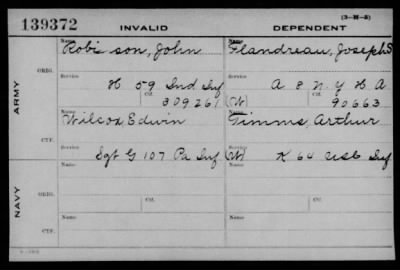 (3-M-5)
139372 INVALID DEPENDENT
Name Name
Robinson, John Flandreau, Joseph S
ORIG. Service Service
H 59 Ind Inf A 8 N.Y H A
Ctf. Ctf.
309261 (W) 90663
ARMY
Name Name
Wilcox Edwin Timms, Arthur
CTF. Service Service
Sgt G 107 Pa Inf (W) K 64 Inf
Name Name
ORIG. Service Service
Ctf. Ctf.
NAVY
Name Name
CTF. Service Service